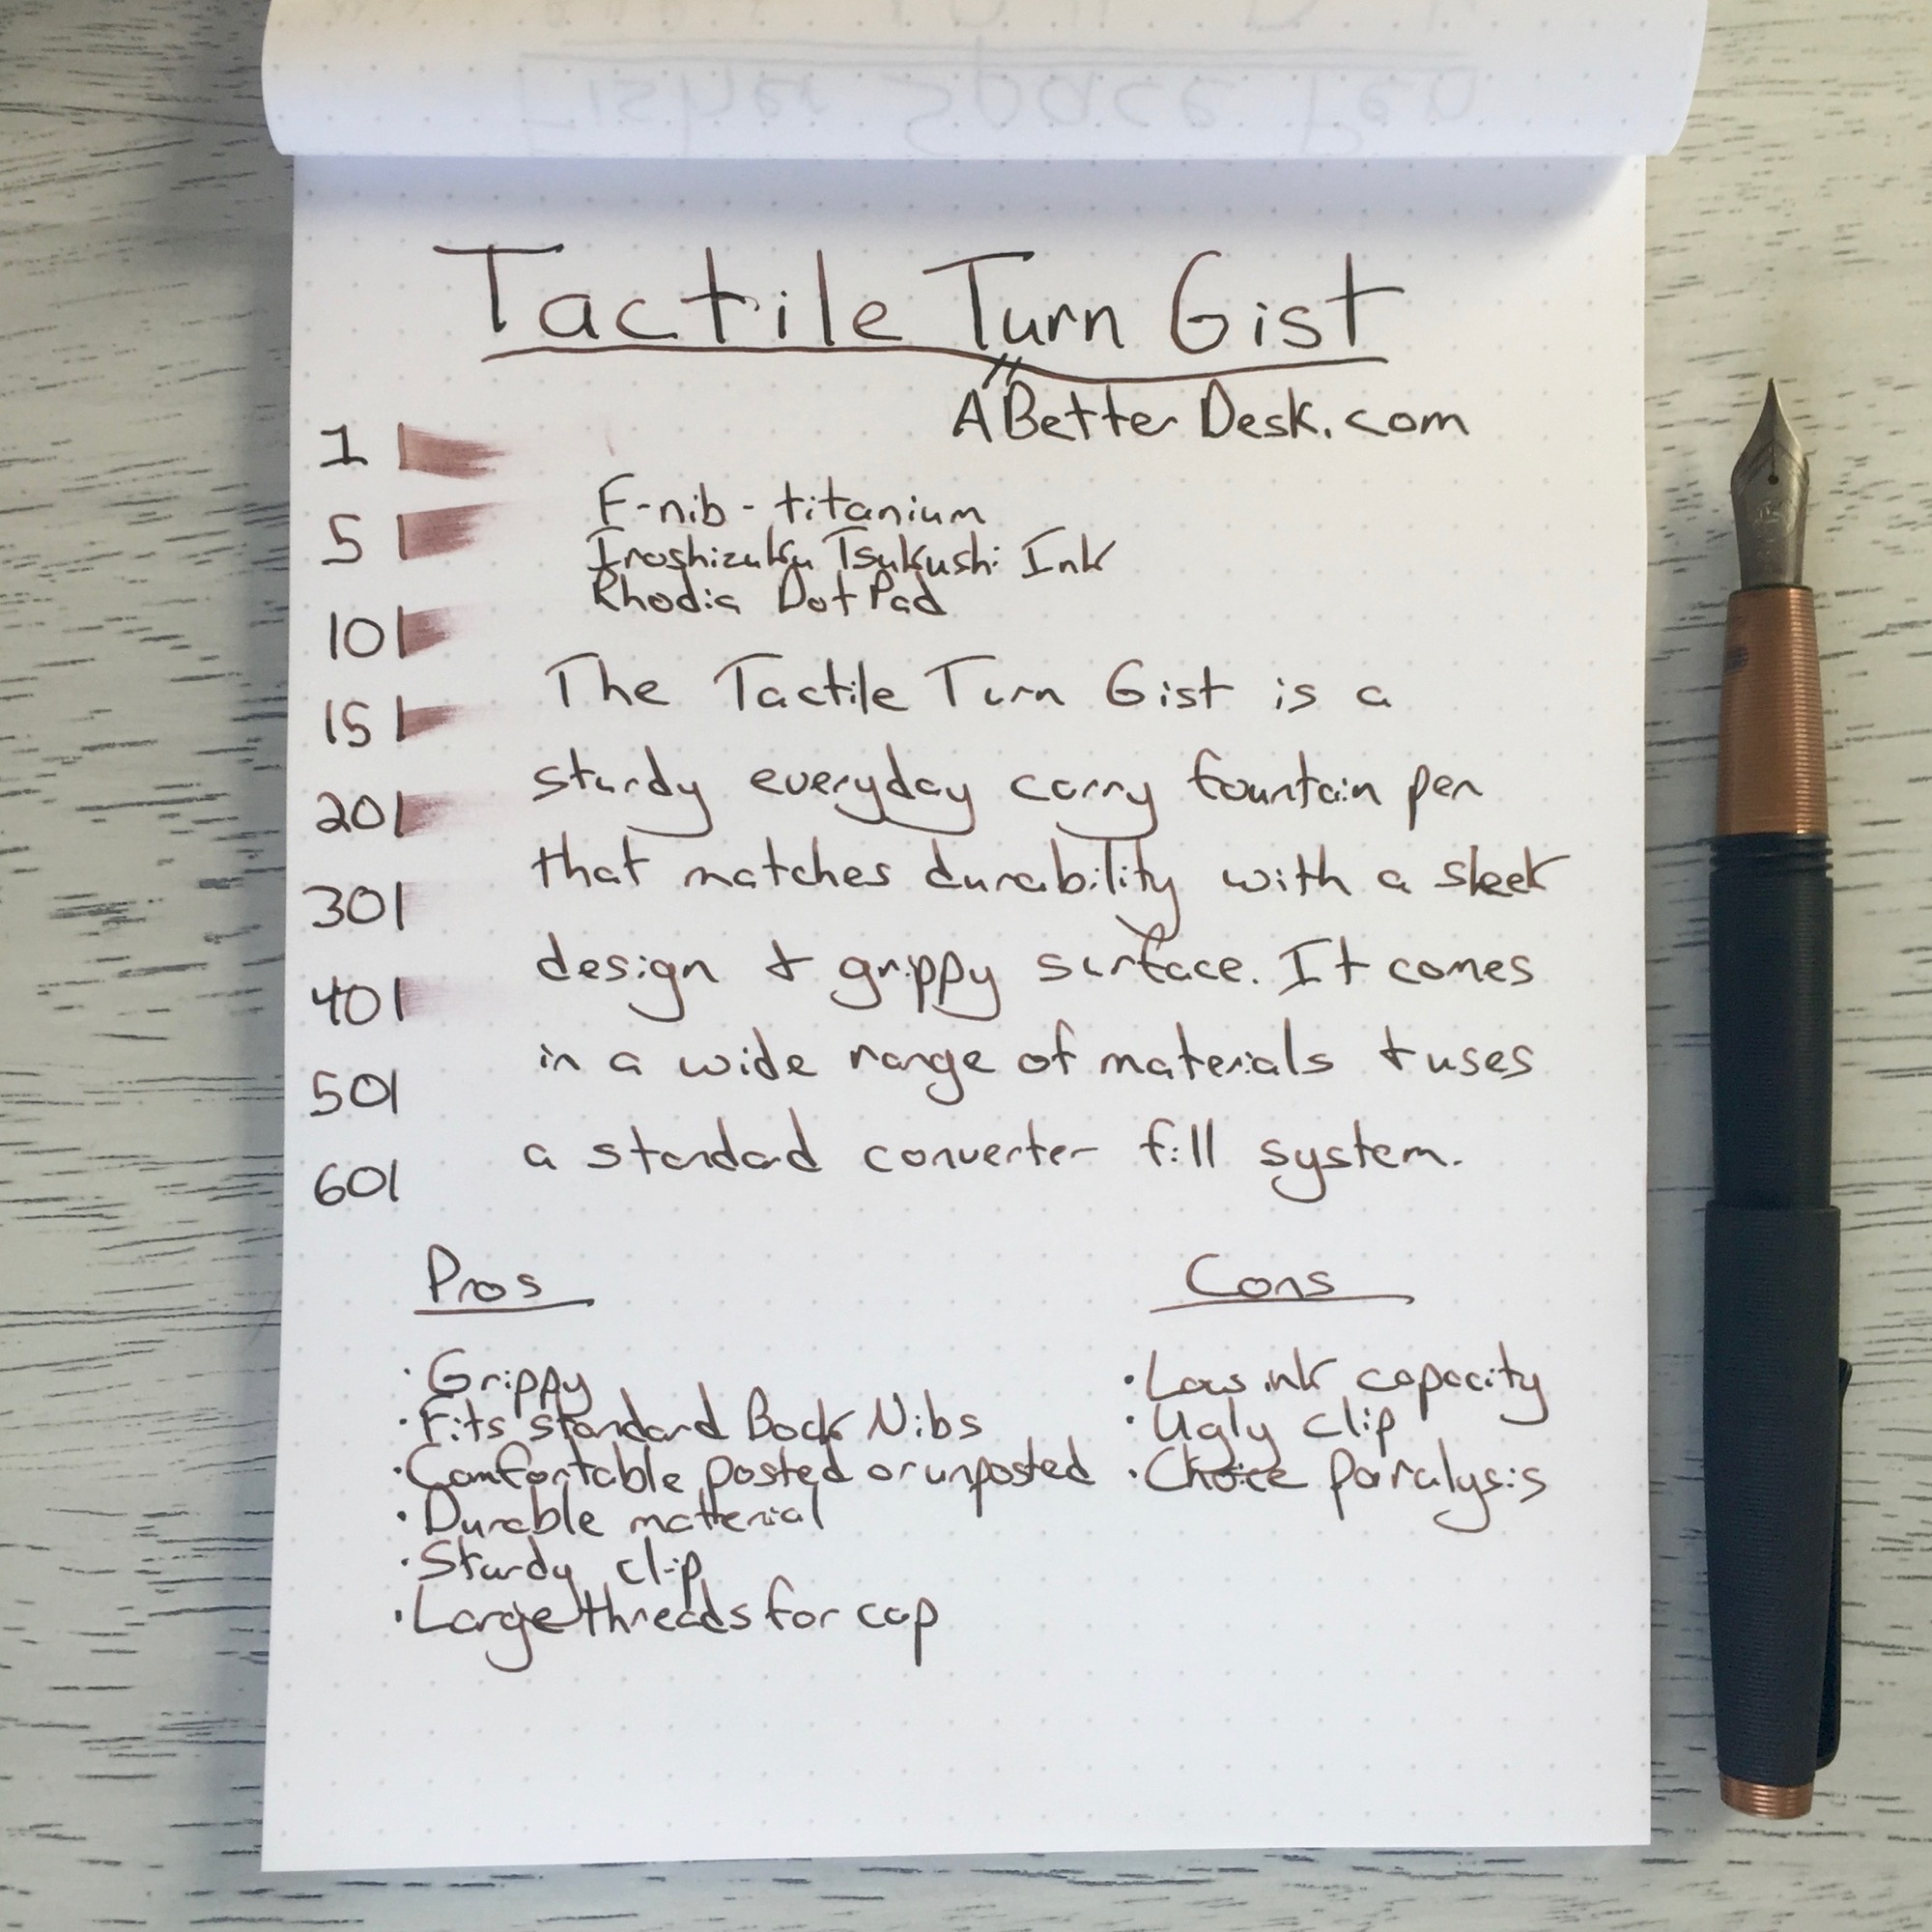 Tactile Turn Gist
ABetterDesk.com
1
5
10
15
20
30
40
50
60
F-nib - titanium
Iroshizuku Tsukushi Ink
Rhodia Dot Pad
The Tactile Turn Gist is a
sturdy everyday carry fountain pen
that matches durability with a sleek
design + grippy surface. It comes
in a wide range of materials + uses
a standard converter fill system.
Pros
· Grippy
· Fits standard Bock Nibs
· Comfortable posted or unposted
· Durable material
· Sturdy clip
· Large threads for cap
Cons
· Low ink capacity
· Ugly clip
· Choice Paralysis